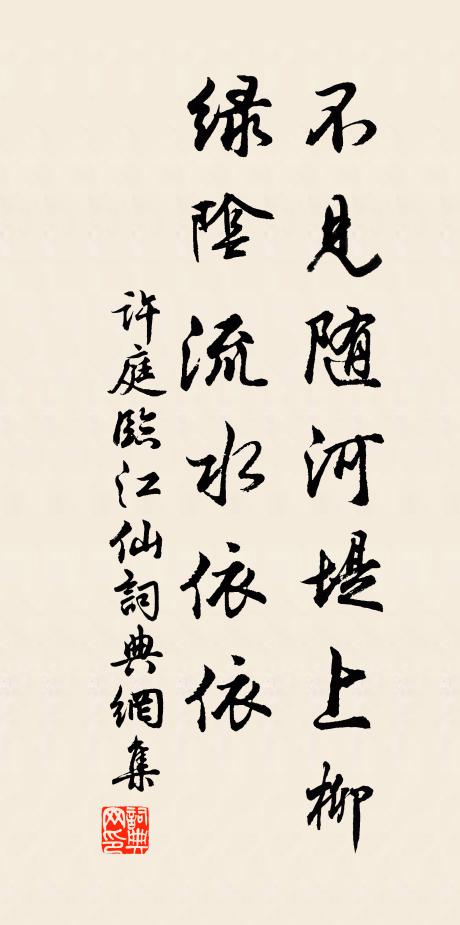 不見随河堤上柳
緑陰流水依依
許庭臨江仙詞典網集
詞典网印